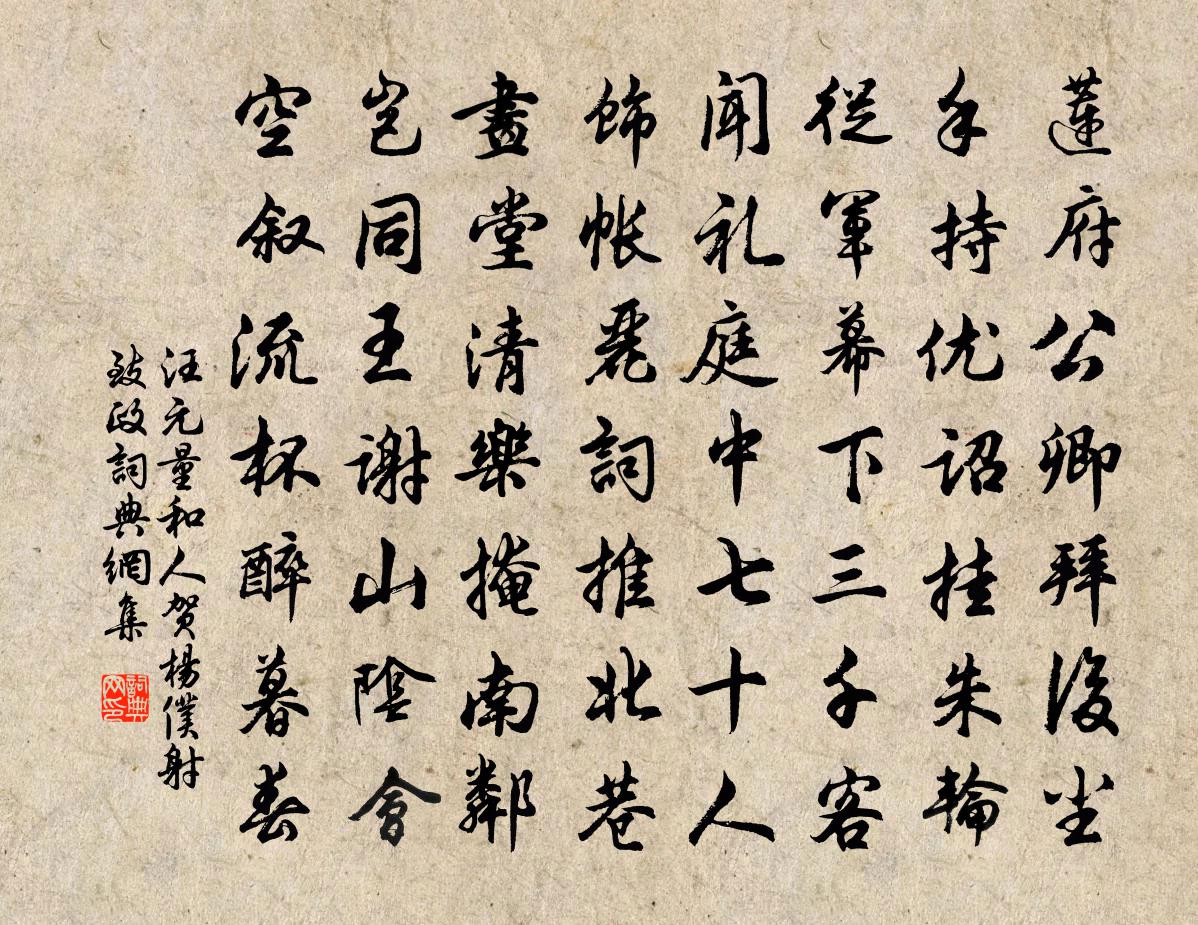 蓮府公卿拜後尘
手持优詔挂朱輪
從軍幕下三千客
聞礼庭中七十人
飾帳麗詞推北巷
畫堂清樂掩南鄰
岂同王謝山陰會
空叙流杯醉暮春
汪元量和人贺楊僕射
致政詞典網集
詞典网印